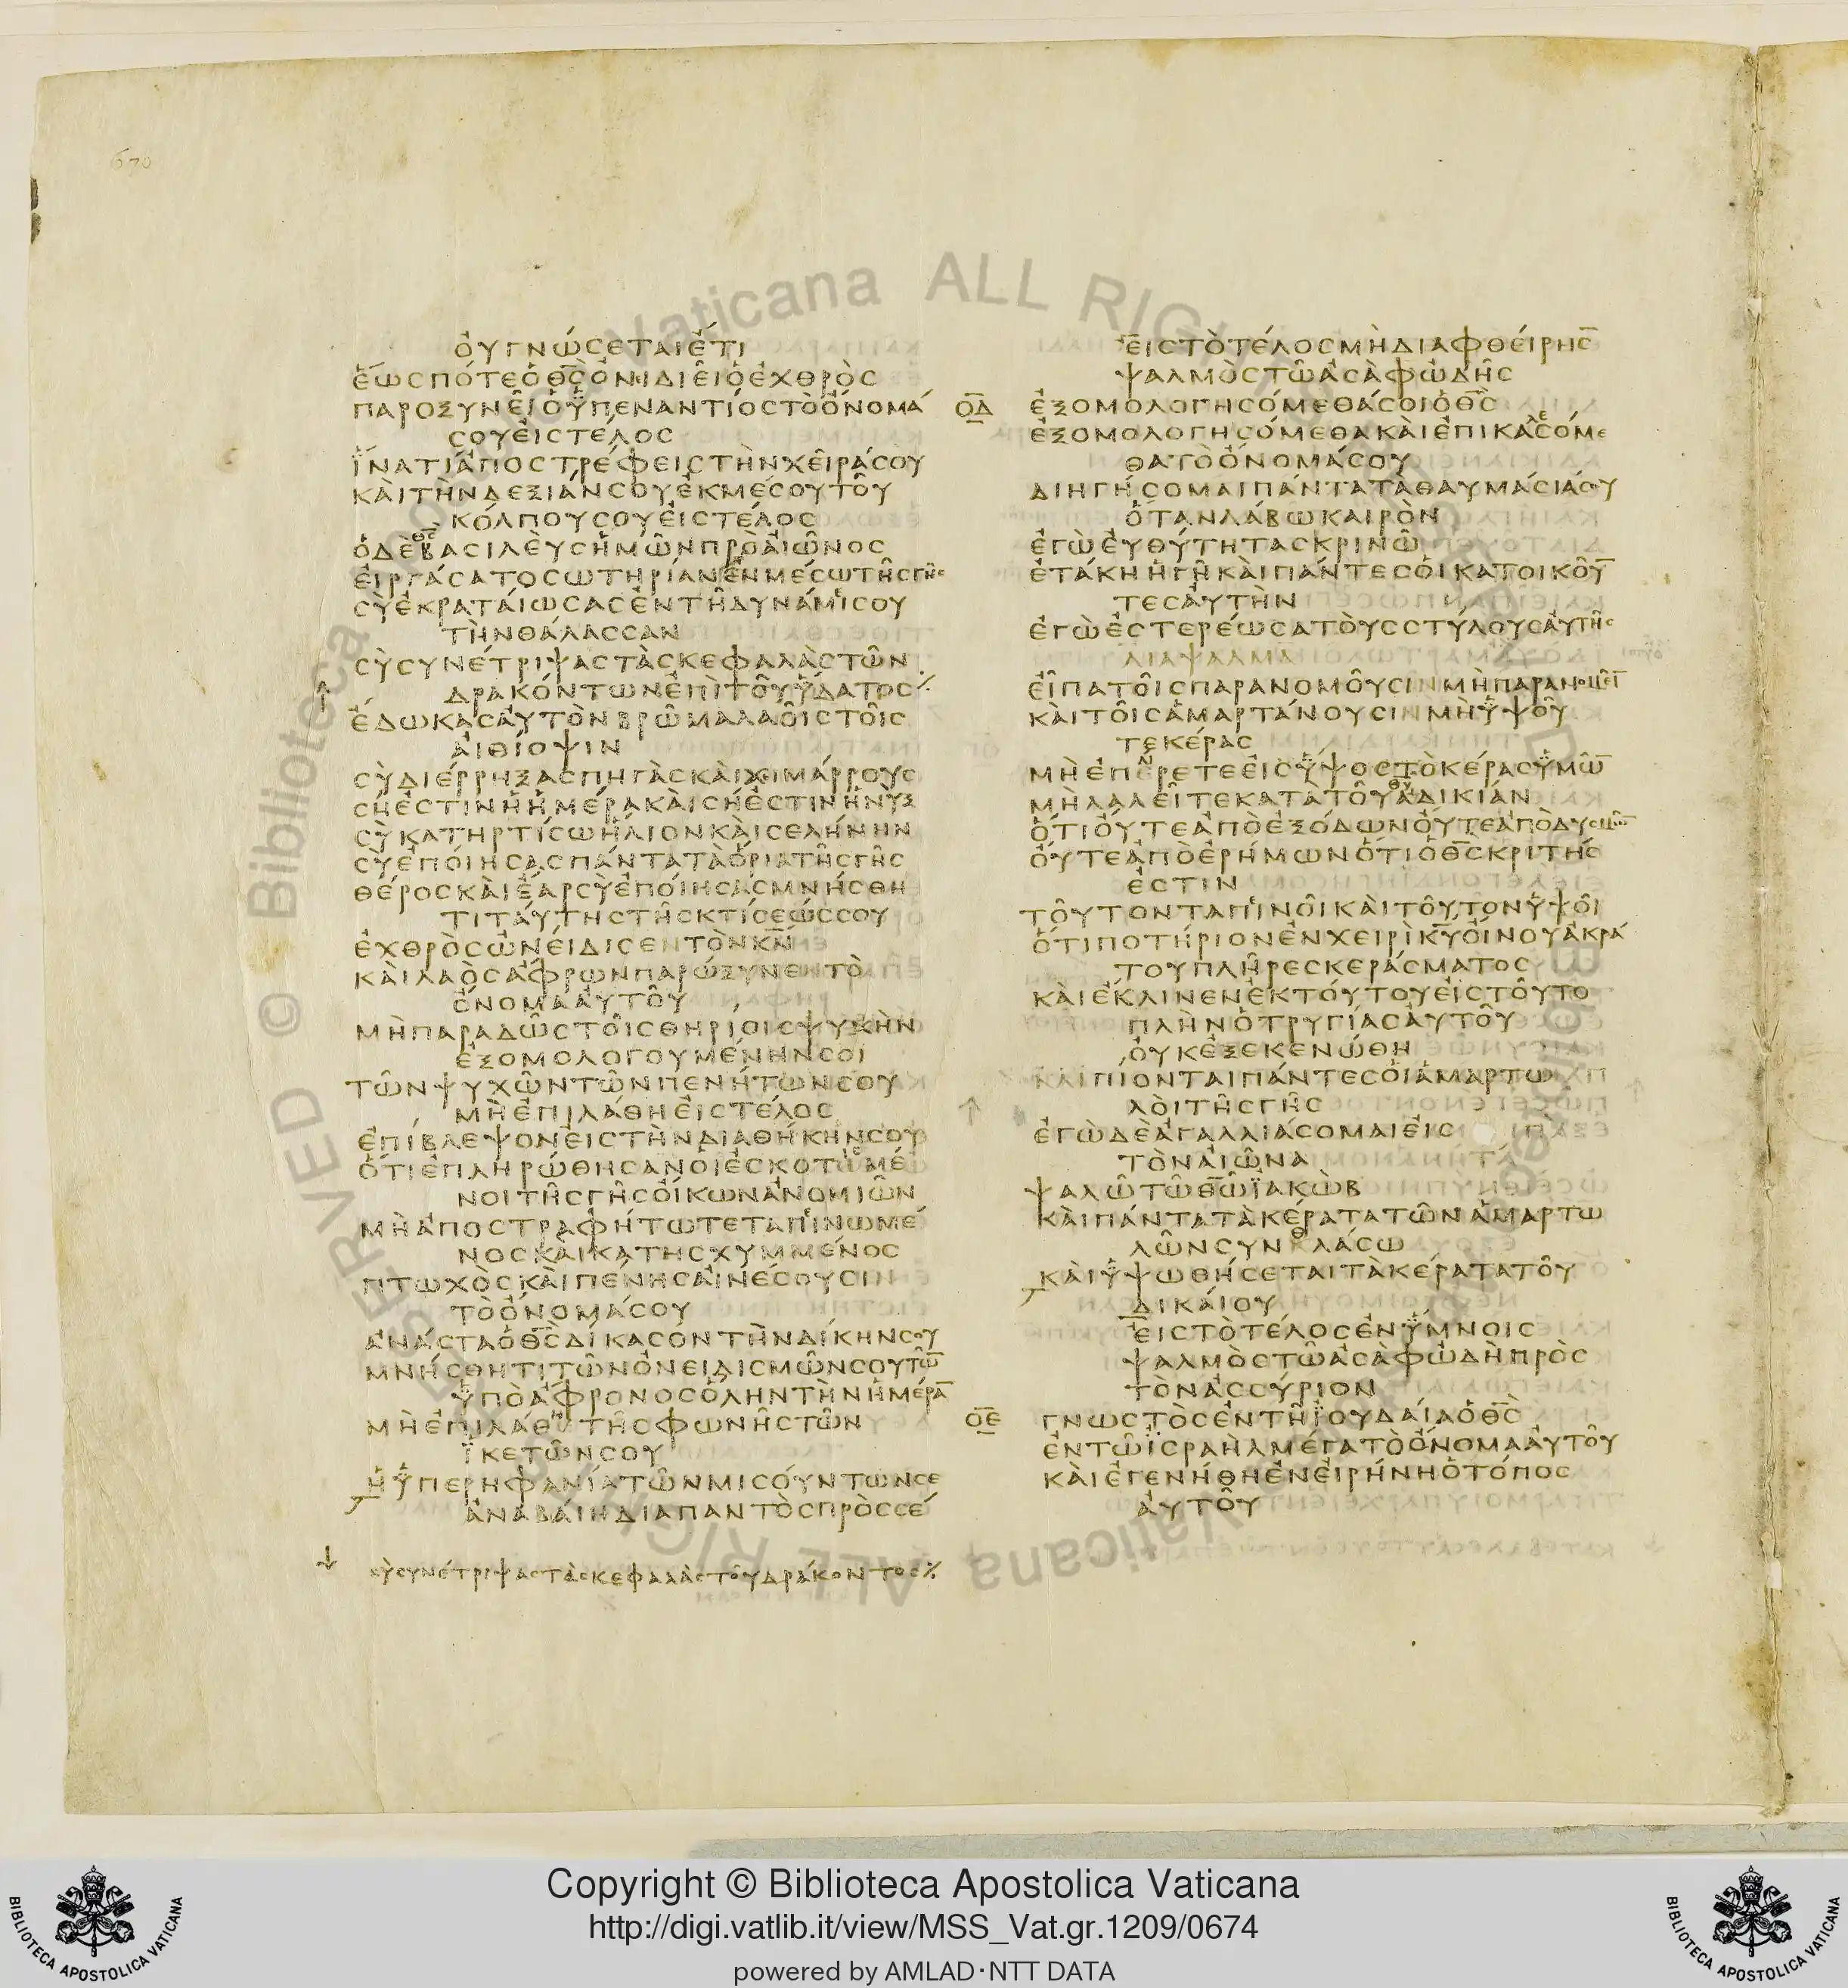 670
ὀυγνώσεταιἔτι
ἕωσπότεὁθ̅ς̅ὀνιδιεῖὁἐχθρὸς
παροξυνεῖὁὑπεναντίοςτὸὄνομά
σουἐιςτέλος
ἵνατίἀποστρέφειςτὴνχεῖράσου
κὰιτὴνδεξιάνσουἐκμέσουτοῦ
κόλπουσουἐιςτέλος
ὁδὲθ̅ς̅βασιλὲυςἡμῶνπρὸἀιῶνος
ἐιργάσατοσωτηρίανἐνμέσωτῆςγῆς
σὺἐκρατάιωσαςἐντῆδυνάμεισου
τὴνθάλασσαν
σὺσυνέτριψαςτὰςκεφαλὰςτῶν
δρακόντωνἐπὶτοῦὕδατος⁒
ἔδωκαςἀυτὸνβρῶμαλαοῖςτοῖς
ἀιθίοψιν
σὺδιέρρηξαςπηγὰςκὰιχειμάρρους
σήἐστινἡἡμέρακὰισήἐστινἡνὺξ
σὺκατηρτίσωἥλιονκὰισελήνην
σὺἐπόιησαςπάντατὰὅριατῆςγῆς
θέροςκὰιἔαρσὺἐπόιησαςμνήσθη
τιτάυτηςτῆςκτίσεώςσου
ἐχθρὸςὠνείδισεντὸνκ̅ν̅
κὰιλαὸςἄφρωνπαρώξυνεντὸ
ὄνομαἀυτοῦ
μὴπαραδῶςτοῖςθηρίοιςψυχὴν
ἐξομολογουμένηνσοι
τῶνψυχῶντῶνπενήτωνσου
μὴἐπιλάθηἐιςτέλος
ἐπίβλεψονἐιςτὴνδιαθήκηνσου
ὅτιἐπληρώθησανὁιἐσκοτισμέ
νοιτῆςγῆςὄικωνἀνομιῶν
μὴἀποστραφήτωτεταπεινωμέ
νοςκαικατησχυμμένος
πτωχὸςκὰιπένηςἀινέσουσιν
τὸὄνομάσου
ἀνάσταὁθ̅ς̅δίκασοντὴνδίκηνσου
μνήσθητιτῶνὀνειδισμῶνσουτῶ̅
ὑπὸἄφρονοςὅληντὴνἡμέρα̅
μὴἐπιλάθητῆςφωνῆςτῶν
ἱκετῶνσου
ἡὑπερηφανίατῶνμισόυντωνσε
ἀναβάιηδιαπαντὸςπρὸςσέ
σὺσυνέτριψαςτὰςκεφαλὰςτοῦδράκοντος⁒
ἐιςτὸτέλοςμὴδιαφθέιρης
ψαλμὸςτῶἀσὰφὠδῆς
ο̅δ̅ ἐξομολογησόμεθάσοιὁθ̅ς̅
ἐξομολογησόμεθακὰιἐπικαλεσόμε
θατὸὄνομάσου
διηγήσομαιπάντατὰθαυμάσιάσου
ὅτανλάβωκαιρὸν
ἐγὼἐυθύτηταςκρινῶ
ἐτάκηἡγῆκὰιπάντεςὁικατοικοῦ̅
τεςἀυτὴν
ἐγὼἐστερέωσατὸυςστύλουςἀυτῆς
διαψαλμα
εἶπατοῖςπαρανομοῦσινμὴπαρανομεῖτ
κὰιτοῖςἁμαρτάνουσινμὴὑψοῦ
τεκέρας
μὴἐπέρετεἐιςὕψοςτὸκέραςὑμῶ̅
μὴλαλεῖτεκατατοῦθ̅υ̅ἀδικίαν
ὅτιὄυτεἀπὸἐξόδωνὄυτεἀπὸδυσμῶ̅
ὄυτεἀπὸἐρήμωνὅτιὁθ̅ς̅κριτής
ἐστιν
τοῦτονταπεινοῖκὰιτοῦτονὑψοῖ
ὅτιποτήριονἐνχειρὶκ̅υ̅ὄινουἀκρά
τουπλῆρεςκεράσματος
κὰιἔκλινενἐκτόυτουἐιςτοῦτο
πλὴνὁτρυγίαςἀυτοῦ
ὀυκἐξεκενώθη
κὰιπίονταιπάντεςὁιἁμαρτω
λὸιτῆςγῆς
ἐγὼδὲἀγαλλιάσομαιἐις
τὸνἀιῶνα
ψαλῶτῶθ̅ῶ̅ἰακὼβ
κὰιπάντατὰκέρατατῶνἁμαρτω
λῶνσυνθλάσω
κὰιὑψωθήσεταιτὰκέρατατοῦ
δικάιου
ἐιςτὸτέλοςἐνὕμνοις
ψαλμὸςτῶἀσὰφὠδὴπρὸς
τὸνἀσσύριον
ο̅ε̅ γνωστὸςἐντῆἰουδάιαὁθ̅ς̅
ἐντῶἰσραὴλμέγατὸὄνομαἀυτοῦ
κὰιἐγενήθηἐνἐιρήνηὁτόπος
ἀυτοῦ
Copyright © Biblioteca Apostolica Vaticana
http://digi.vatlib.it/view/MSS_Vat.gr.1209/0674
powered by AMLAD·NTT DATA
BIBLIOTECA APOSTOLICA VATICANA
BIBLIOTECA APOSTOLICA VATICANA